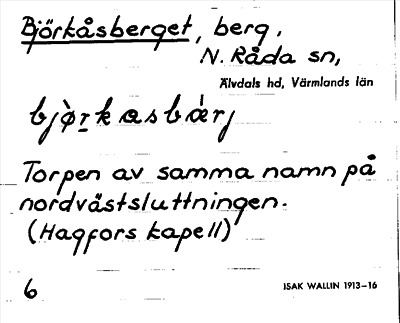 Björkåsberget, berg,
N. Råda sn,
Älvdals hd, Värmlands län
Torpen av samma namn på
nordvästsluttningen.
(Hagfors kapell)
6
ISAK WALLIN 1913–16